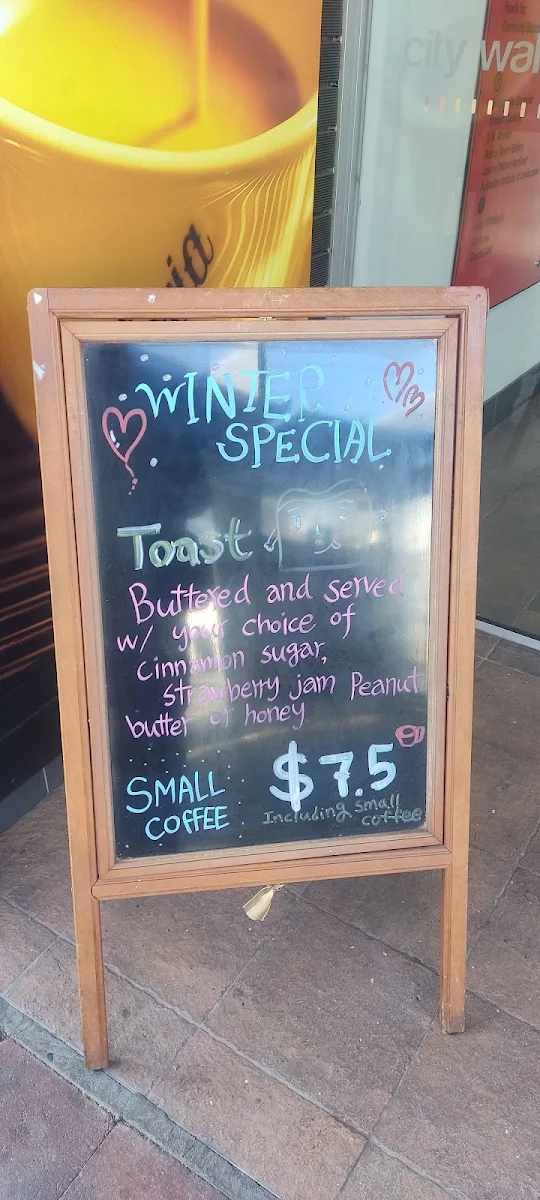 city wal
WINTER
SPECIAL
Toast
Buttered and served
w/ your choice of
cinnamon sugar,
strawberry jam Peanut
butter or honey
SMALL
COFFEE
$7.5
Including small
coffee